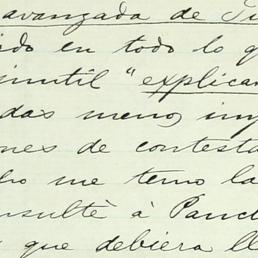 avanzada de
ido en todo lo q
inutil "explicar
das menos im
ones de contesta
ho me temo la
onsultè à Panc
que debiera ll